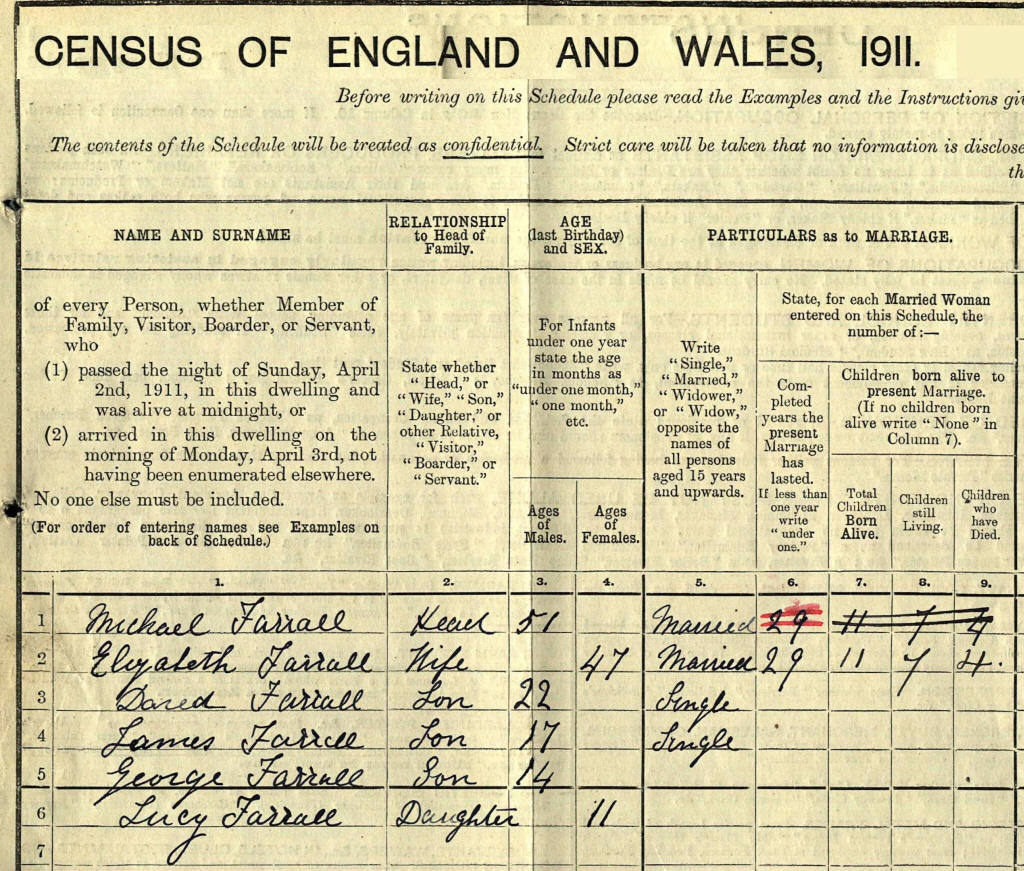 CENSUS OF ENGLAND AND WALES, 1911.
Before writing on this Schedule please read the Examples and the Instructions gi
The contents of the Schedule will be treated as confidential. Strict care will be taken that no information is disclose
th
NAME AND SURNAME
RELATIONSHIP
to Head of
Family.
AGE
(last Birthday)
and SEX.
PARTICULARS as to MARRIAGE.
of every Person, whether Member of
Family, Visitor, Boarder, or Servant,
who
(1) passed the night of Sunday, April
2nd, 1911, in this dwelling and
was alive at midnight, or
(2) arrived in this dwelling on the
morning of Monday, April 3rd, not
having been enumerated elsewhere.
No one else must be included.
(For order of entering names see Examples on
back of Schedule.)
State whether
"Head," or
"Wife," "Son,"
"Daughter," or
other Relative,
"Visitor,"
"Boarder," or
"Servant."
For Infants
under one year
state the age
in months as
"under one month,"
"one month,"
etc.
Ages
of
Males.
Ages
of
Females.
Write
"Single,"
"Married,"
"Widower,"
or "Widow,"
opposite the
names of
all persons
aged 15 years
and upwards.
State, for each Married Woman
entered on this Schedule, the
number of:—
Com-
pleted
years the
present
Marriage
has
lasted.
If less than
one year
write
"under
one."
Children born alive to
present Marriage.
(If no children born
alive write "None" in
Column 7).
Total
Children
Born
Alive.
Children
still
Living.
Children
who
have
Died.
1. 2. 3. 4. 5. 6. 7. 8. 9.
1 Michael Farrall Head 51 Married 29 11 7 4
2 Elizabeth Farrall Wife 47 Married 29 11 7 4.
3 David Farrall Son 22 Single
4 James Farrall Son 17 Single
5 George Farrall Son 14
6 Lucy Farrall Daughter 11
7